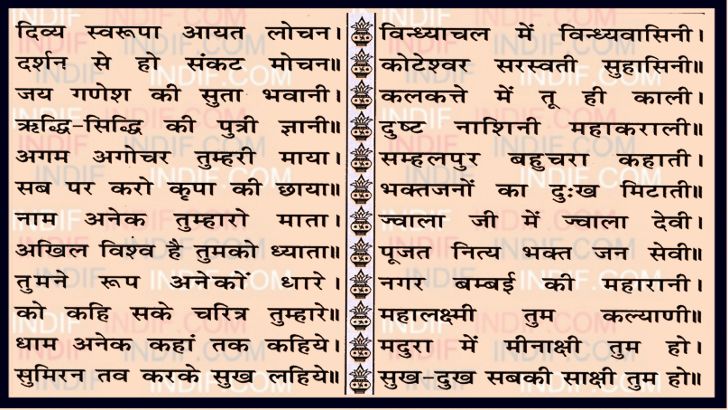 दिव्य स्वरूपा आयत लोचन।
दर्शन से हो संकट मोचन॥
जय गणेश की सुता भवानी।
ऋद्धि-सिद्धि की पुत्री ज्ञानी॥
अगम अगोचर तुम्हरी माया।
सब पर करो कृपा की छाया॥
नाम अनेक तुम्हारो माता।
अखिल विश्व है तुमको ध्याता॥
तुमने रूप अनेकों धारे।
को कहि सके चरित्र तुम्हारे॥
धाम अनेक कहां तक कहिये।
सुमिरन तव करके सुख लहिये॥
विन्ध्याचल में विन्ध्यवासिनी।
कोटेश्वर सरस्वती सुहासिनी॥
कलकत्ते में तू ही काली।
दुष्ट नाशिनी महाकराली॥
सम्हलपुर बहुचरा कहाती।
भक्तजनों का दुःख मिटाती॥
ज्वाला जी में ज्वाला देवी।
पूजत नित्य भक्त जन सेवी॥
नगर बम्बई की महारानी।
महालक्ष्मी तुम कल्याणी॥
मदुरा में मीनाक्षी तुम हो।
सुख-दुख सबकी साक्षी तुम हो॥
INDIF.COM